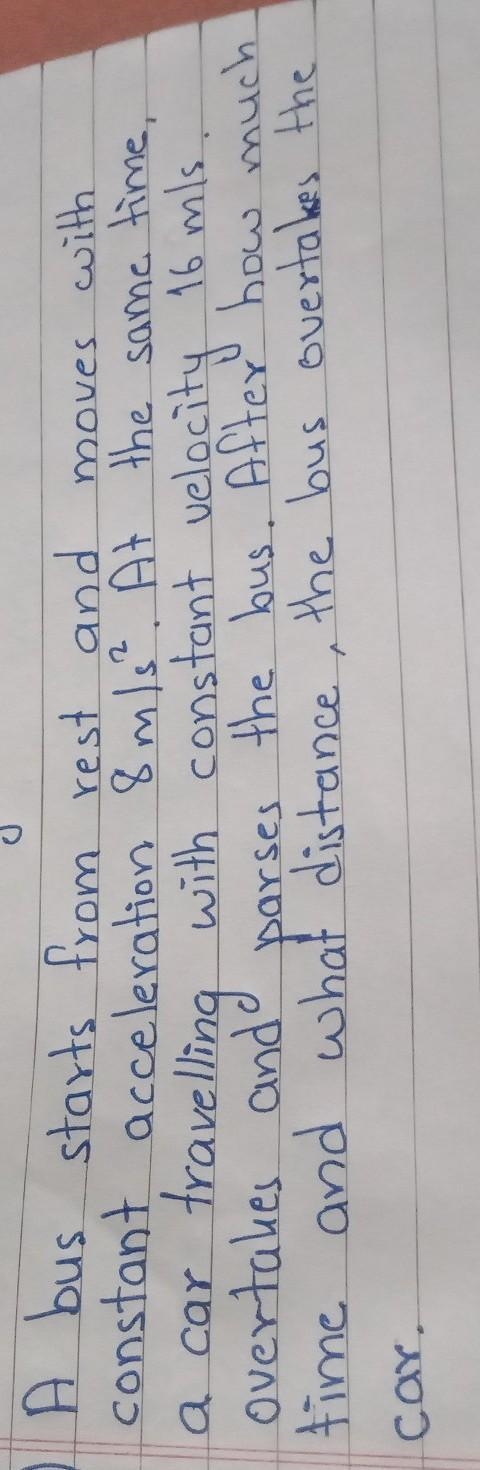 A bus starts from rest and moves with
constant acceleration 8 m/s². At the same time,
a car travelling with constant velocity 16 m/s.
overtakes and parses the bus. After how much
time and what distance, the bus overtakes the
car.